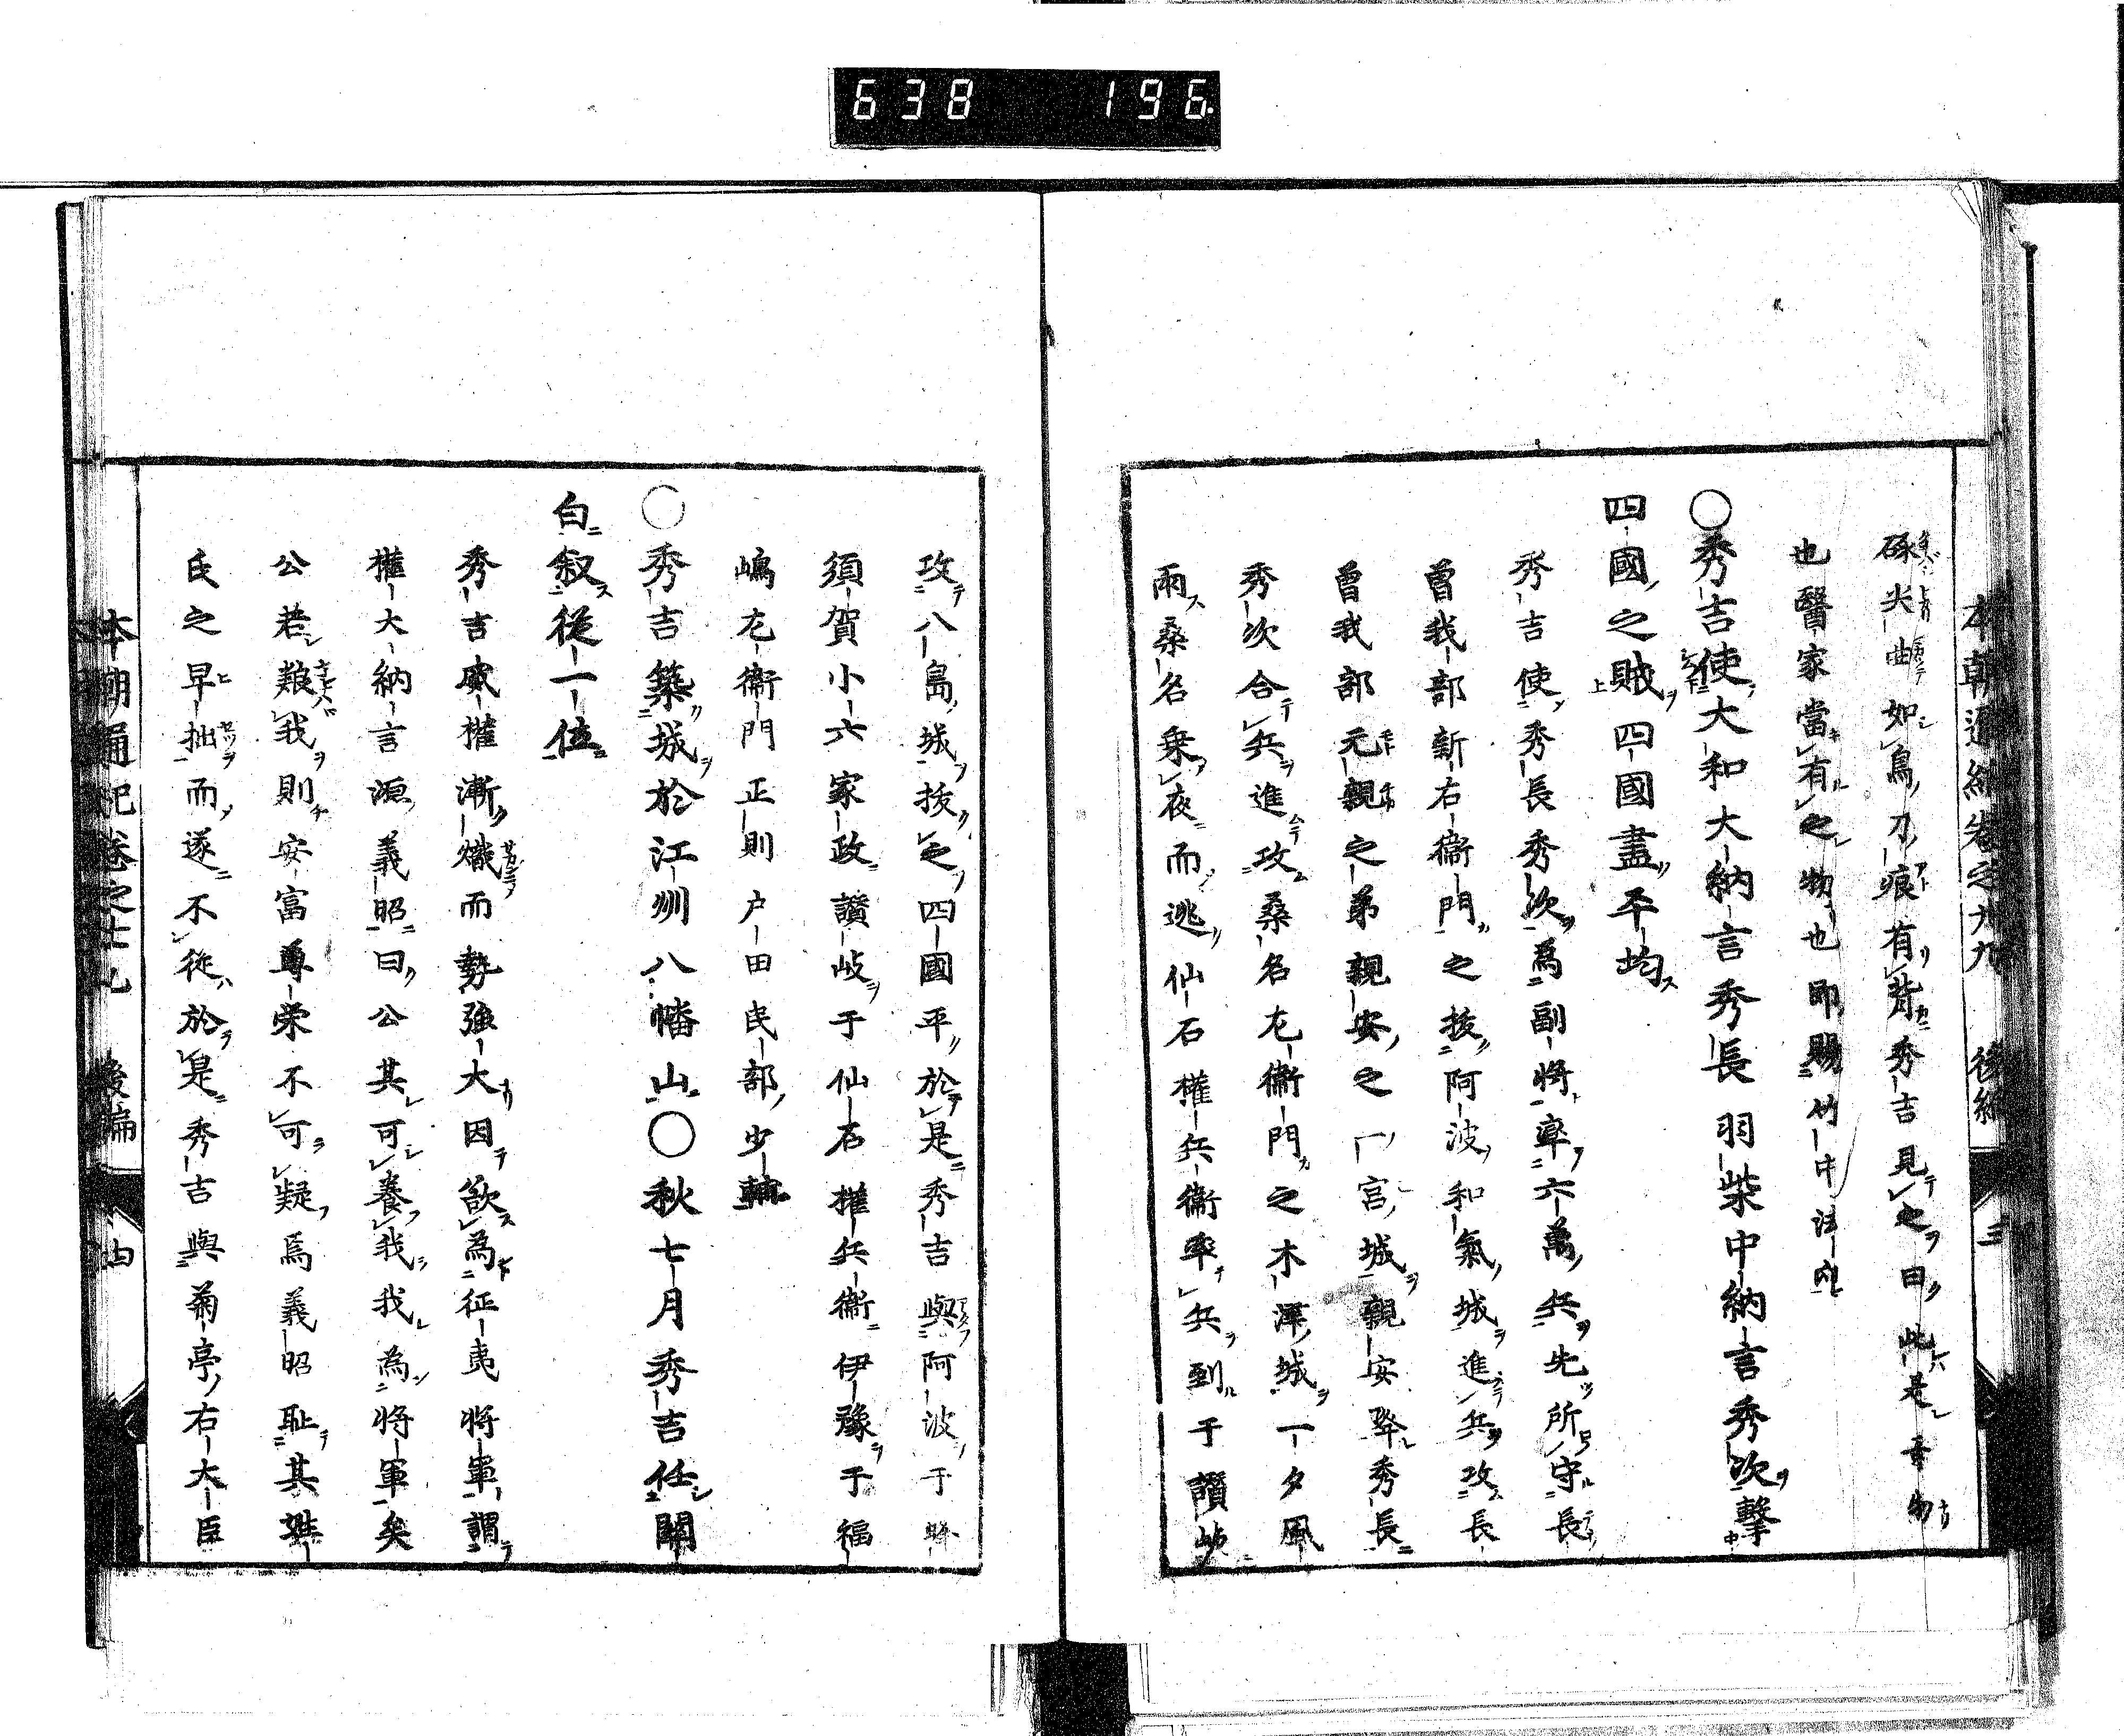 638 196
本朝通紀卷之廿九 後編 三
尖曲如鳥刀痕有背秀吉見之曰此是物
也醫家當有之物也即賜竹中法印
○秀吉使大和大納言秀長羽柴中納言秀次撃
四國之賊四國盡平均
秀吉使秀長秀次為副將率六萬兵先所守長
曽我部新右衞門之抜阿波和氣城進兵攻長
曽我部元親之弟親安之一宮城親安降秀長
秀次合兵進攻桑名左衞門之木澤城一夕風
雨桑名乗夜而逃仙石權兵衞率兵到于讃岐
攻八島城抜之四國平於是秀吉與阿波于蜂
須賀小六家政讃岐于仙石權兵衞伊豫于福
嶋左衞門正則户田民部少輔
○秀吉築城於江州八幡山○秋七月秀吉任關
白叙從一位
秀吉威權漸熾而勢強大因欲為征夷將軍謂
權大納言源義昭曰公其可養我我為將軍矣
公若難我則安富尊栄不可疑焉義昭耻其
氏之早拙而遂不從於是秀吉與菊亭右大臣
本朝通紀卷之廿九 後編